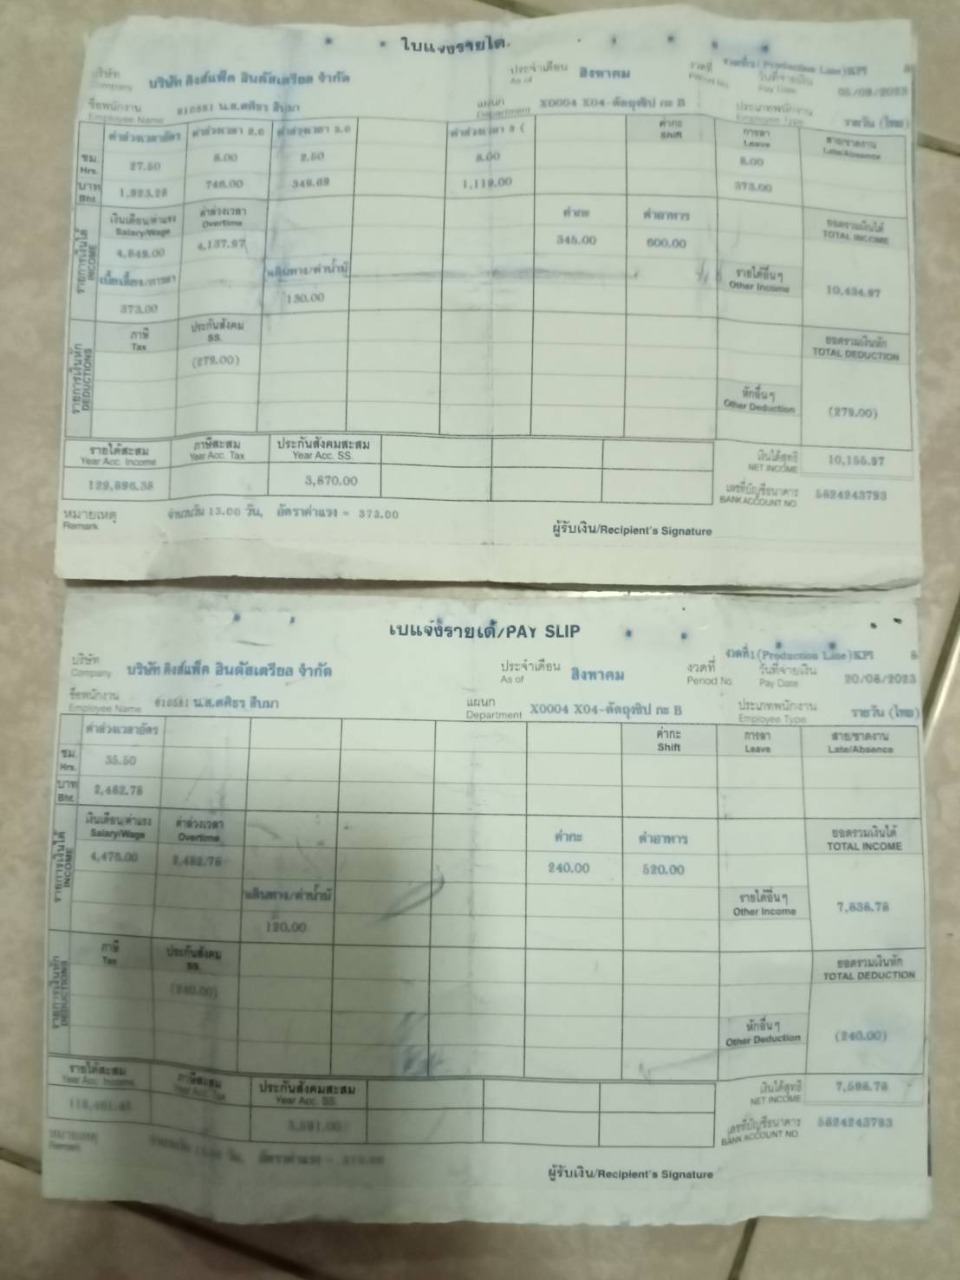 ใบแจ้งรายได้
บริษัท บริษัท คิงส์แพ็ค อินดัสเตรียล จำกัด ประจำเดือน สิงหาคม งวดที่ (Production Line)KPI
Company As of Period No. วันที่จ่ายเงิน Pay Date 05/09/2023
ชื่อพนักงาน น.ส. แผนก X0004 X04- กะ B ประเภทพนักงาน รายวัน (ไทย)
Employee Name Department Employee Type
ค่าล่วงเวลาอัตรา ค่าล่วงเวลา 2.0 ค่าล่วงเวลา 3.0 ค่าล่วงเวลา 3 ( ค่ากะ Shift การลา Leave สาย/ขาดงาน Late/Absence
ชม. Hrs. 27.50 8.00 2.50 8.00 8.00
บาท Bht. 1,923.28 746.00 349.69 1,119.00 373.00
รายการเงินได้ INCOME
เงินเดือน/ค่าแรง ค่าล่วงเวลา ค่ากะ ค่าอาหาร ยอดรวมเงินได้
Salary/Wage Overtime TOTAL INCOME
4,849.00 4,137.97 345.00 600.00
เดินทาง/ค่าน้ำมั รายได้อื่นๆ
Other Income 10,434.97
373.00 130.00
รายการเงินหัก DEDUCTIONS
ภาษี ประกันสังคม ยอดรวมเงินหัก
Tax SS. TOTAL DEDUCTION
(279.00)
หักอื่นๆ
Other Deduction (279.00)
รายได้สะสม ภาษีสะสม ประกันสังคมสะสม เงินได้สุทธิ 10,155.97
Year Acc. Income Year Acc. Tax Year Acc. SS. NET INCOME
129,896.38 3,870.00 เลขที่บัญชีธนาคาร 5824243793
BANK ACCOUNT NO.
หมายเหตุ จำนวนวัน 13.00 วัน, อัตราค่าแรง = 373.00
Remark ผู้รับเงิน/Recipient's Signature
ใบแจ้งรายได้/PAY SLIP
บริษัท บริษัท คิงส์แพ็ค อินดัสเตรียล จำกัด ประจำเดือน สิงหาคม งวดที่ งวดที่1(Production Line)KPI
Company As of Period No. วันที่จ่ายเงิน Pay Date 20/08/2023
ชื่อพนักงาน น.ส. แผนก X0004 X04- กะ B ประเภทพนักงาน รายวัน (ไทย)
Employee Name Department Employee Type
ค่าล่วงเวลาอัตรา ค่ากะ การลา สาย/ขาดงาน
Shift Leave Late/Absence
ชม. Hrs. 35.50
บาท Bht. 2,482.78
รายการเงินได้ INCOME
เงินเดือน/ค่าแรง ค่าล่วงเวลา ค่ากะ ค่าอาหาร ยอดรวมเงินได้
Salary/Wage Overtime TOTAL INCOME
4,476.00 2,482.78 240.00 520.00
เดินทาง/ค่าน้ำมั รายได้อื่นๆ
Other Income 7,838.78
120.00
รายการเงินหัก DEDUCTIONS
ภาษี ประกันสังคม ยอดรวมเงินหัก
Tax SS. TOTAL DEDUCTION
(240.00)
หักอื่นๆ
Other Deduction (240.00)
รายได้สะสม ภาษีสะสม ประกันสังคมสะสม เงินได้สุทธิ 7,598.78
Year Acc. Income Year Acc. Tax Year Acc. SS. NET INCOME
3,591.00 เลขที่บัญชีธนาคาร 5824243793
BANK ACCOUNT NO.
หมายเหตุ
Remark ผู้รับเงิน/Recipient's Signature